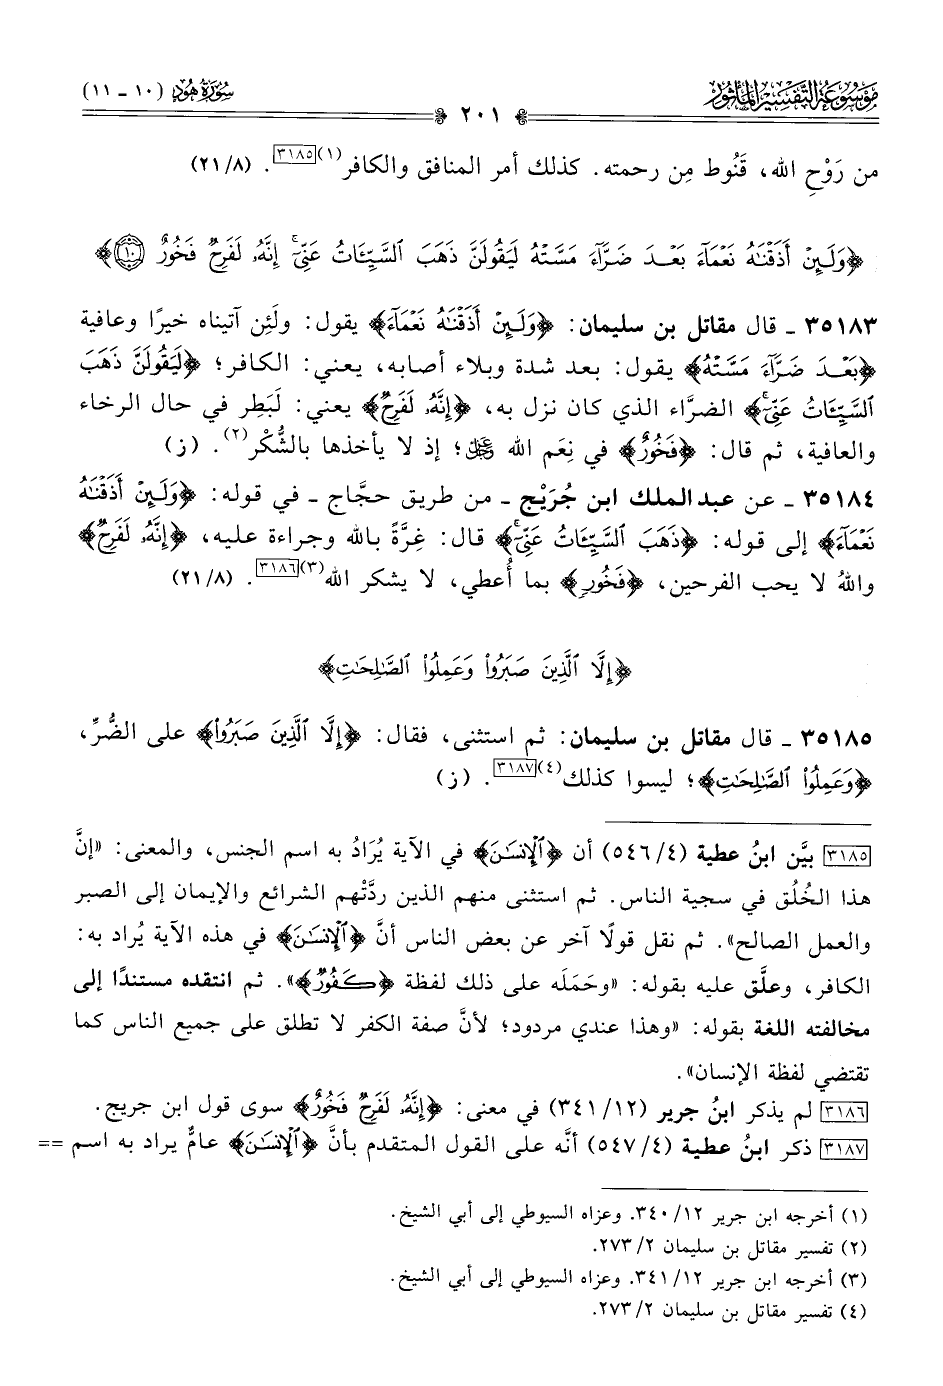 مَوْسُوعَةُ التَّفْسِيرِ المَأْثُورِ
سُورَةُ هُودٍ (١٠ - ١١)
٢٠١
من رَوْحِ الله، قَنُوط مِن رحمته. كذلك أمر المنافق والكافر(١)[٣١٨٥]. (٢١/٨)
﴿وَلَئِنْ أَذَقْنَٰهُ نَعْمَآءَ بَعْدَ ضَرَّآءَ مَسَّتْهُ لَيَقُولَنَّ ذَهَبَ ٱلسَّيِّـَٔاتُ عَنِّىٓ ۚ إِنَّهُۥ لَفَرِحٌ فَخُورٌ ١٠﴾
٣٥١٨٣ ـ قال مقاتل بن سليمان: ﴿وَلَئِنْ أَذَقْنَٰهُ نَعْمَآءَ﴾ يقول: ولَئِن آتيناه خيرًا وعافية
﴿بَعْدَ ضَرَّآءَ مَسَّتْهُ﴾ يقول: بعد شدة وبلاء أصابه، يعني: الكافر؛ ﴿لَيَقُولَنَّ ذَهَبَ
ٱلسَّيِّـَٔاتُ عَنِّىٓ﴾ الضرَّاء الذي كان نزل به، ﴿إِنَّهُۥ لَفَرِحٌ﴾ يعني: لَبَطِر في حال الرخاء
والعافية، ثم قال: ﴿فَخُورٌ﴾ في نِعَم الله ﷻ؛ إذ لا يأخذها بالشُّكْر(٢). (ز)
٣٥١٨٤ ـ عن عبد الملك ابن جُرَيْج ـ من طريق حجَّاج ـ في قوله: ﴿وَلَئِنْ أَذَقْنَٰهُ
نَعْمَآءَ﴾ إلى قوله: ﴿ذَهَبَ ٱلسَّيِّـَٔاتُ عَنِّىٓ﴾ قال: غِرَّةً بالله وجراءة عليه، ﴿إِنَّهُۥ لَفَرِحٌ﴾
واللهُ لا يحب الفرحين، ﴿فَخُورٌ﴾ بما أُعطي، لا يشكر الله(٣)[٣١٨٦]. (٢١/٨)
﴿إِلَّا ٱلَّذِينَ صَبَرُوا۟ وَعَمِلُوا۟ ٱلصَّٰلِحَٰتِ﴾
٣٥١٨٥ ـ قال مقاتل بن سليمان: ثم استثنى، فقال: ﴿إِلَّا ٱلَّذِينَ صَبَرُوا۟﴾ على الضُّرِّ،
﴿وَعَمِلُوا۟ ٱلصَّٰلِحَٰتِ﴾؛ ليسوا كذلك(٤)[٣١٨٧]. (ز)
[٣١٨٥] بيَّن ابنُ عطية (٥٤٦/٤) أن ﴿ٱلْإِنسَٰنَ﴾ في الآية يُرَادُ به اسم الجنس، والمعنى: «إنَّ
هذا الخُلُق في سجية الناس. ثم استثنى منهم الذين ردَّتْهم الشرائع والإيمان إلى الصبر
والعمل الصالح». ثم نقل قولًا آخر عن بعض الناس أنَّ ﴿ٱلْإِنسَٰنَ﴾ في هذه الآية يُراد به:
الكافر، وعلَّق عليه بقوله: «وحَمَلَه على ذلك لفظة ﴿كَفُورٌ﴾». ثم انتقده مستندًا إلى
مخالفته اللغة بقوله: «وهذا عندي مردود؛ لأنَّ صفة الكفر لا تطلق على جميع الناس كما
تقتضي لفظة الإنسان».
[٣١٨٦] لم يذكر ابنُ جرير (٣٤١/١٢) في معنى: ﴿إِنَّهُۥ لَفَرِحٌ فَخُورٌ﴾ سوى قول ابن جريج.
[٣١٨٧] ذكر ابنُ عطية (٥٤٧/٤) أنَّه على القول المتقدم بأنَّ ﴿ٱلْإِنسَٰنَ﴾ عامٌّ يراد به اسم ==
(١) أخرجه ابن جرير ٣٤٠/١٢. وعزاه السيوطي إلى أبي الشيخ.
(٢) تفسير مقاتل بن سليمان ٢٧٣/٢.
(٣) أخرجه ابن جرير ٣٤١/١٢. وعزاه السيوطي إلى أبي الشيخ.
(٤) تفسير مقاتل بن سليمان ٢٧٣/٢.